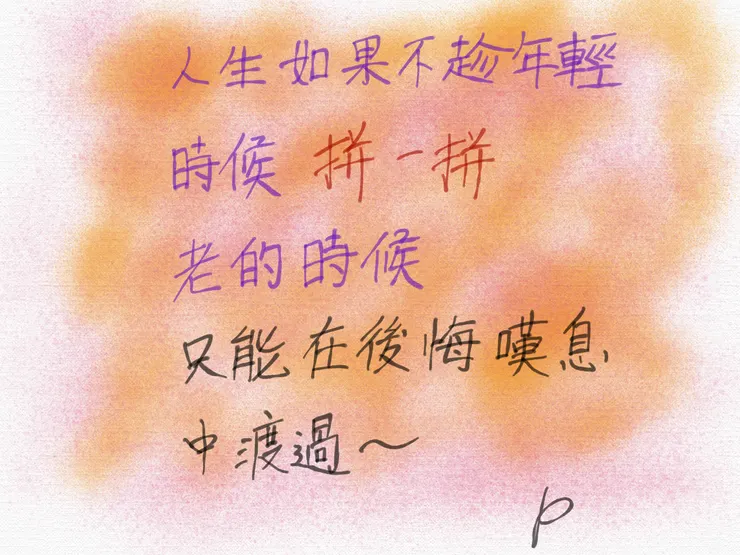 人生如果不趁年輕
時候 拼一拼
老的時候
只能在後悔嘆息
中渡過～
p